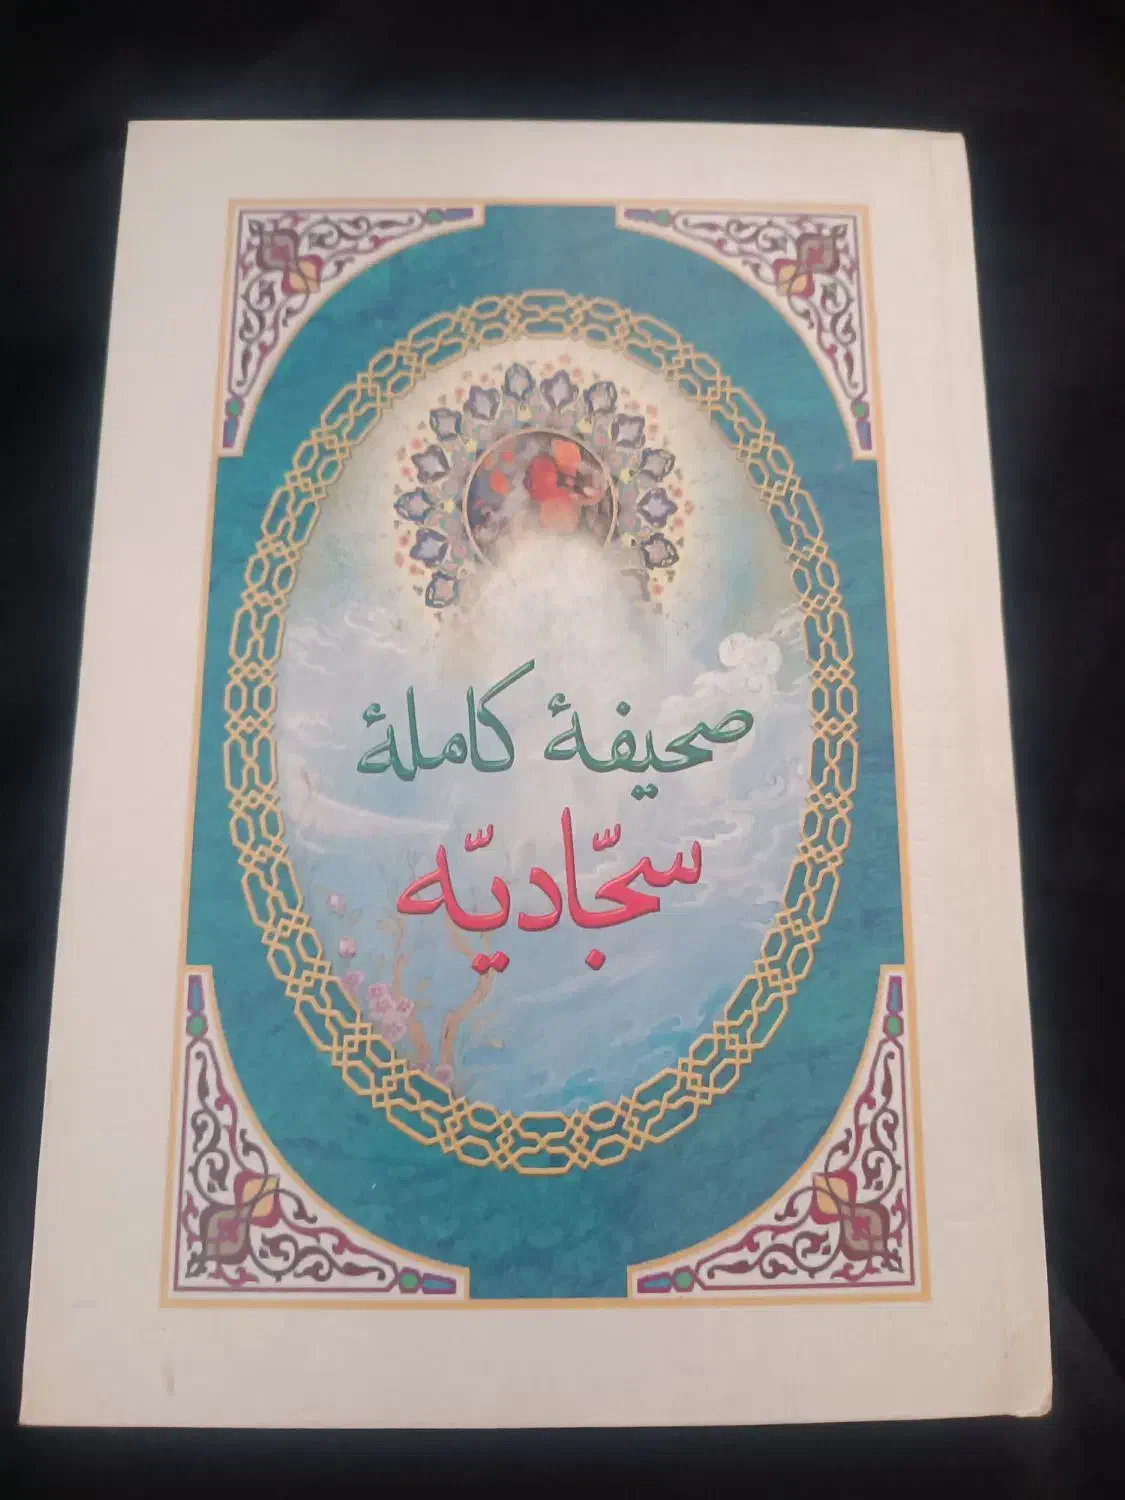 صحیفهٔ کاملهٔ
سجّادیّه